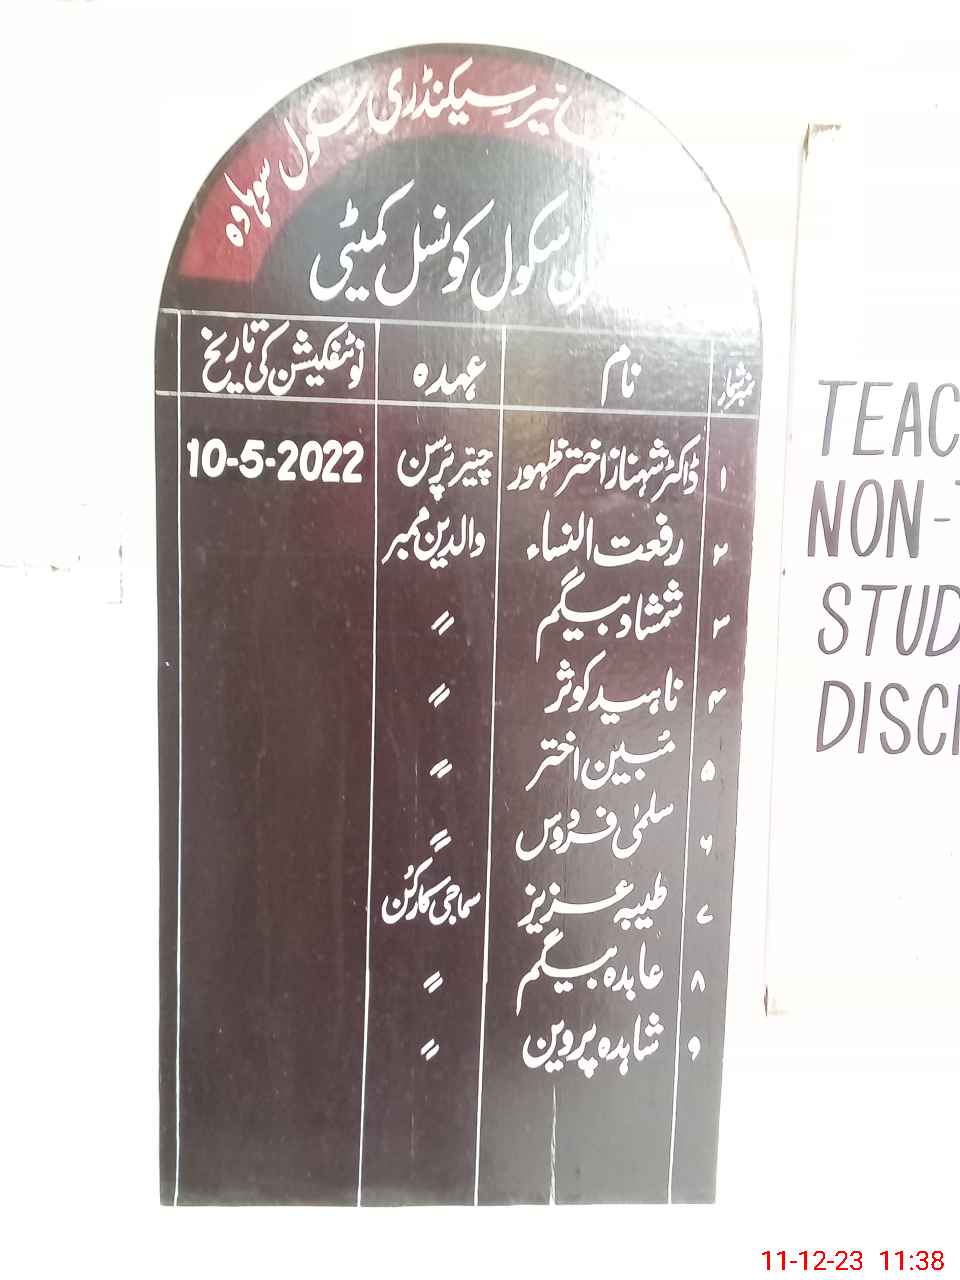 سیکنڈری سکول سوہاوہ
سکول کونسل کمیٹی
نمبر شمار نام عہدہ نوٹیفکیشن کی تاریخ
۱ ڈاکٹر شہناز اختر ظہور چیئر پرسن 10-5-2022
۲ رفعت النساء والدین ممبر
۳ شمشاد بیگم 〃
۴ ناہید کوثر 〃
۵ مُبین اختر 〃
۶ سلمیٰ فردوس 〃
۷ طیبہ عزیز سماجی کارکُن
۸ عابدہ بیگم 〃
۹ شاہدہ پروین 〃
TEAC
NON-
STUD
DISCI
11-12-23 11:38